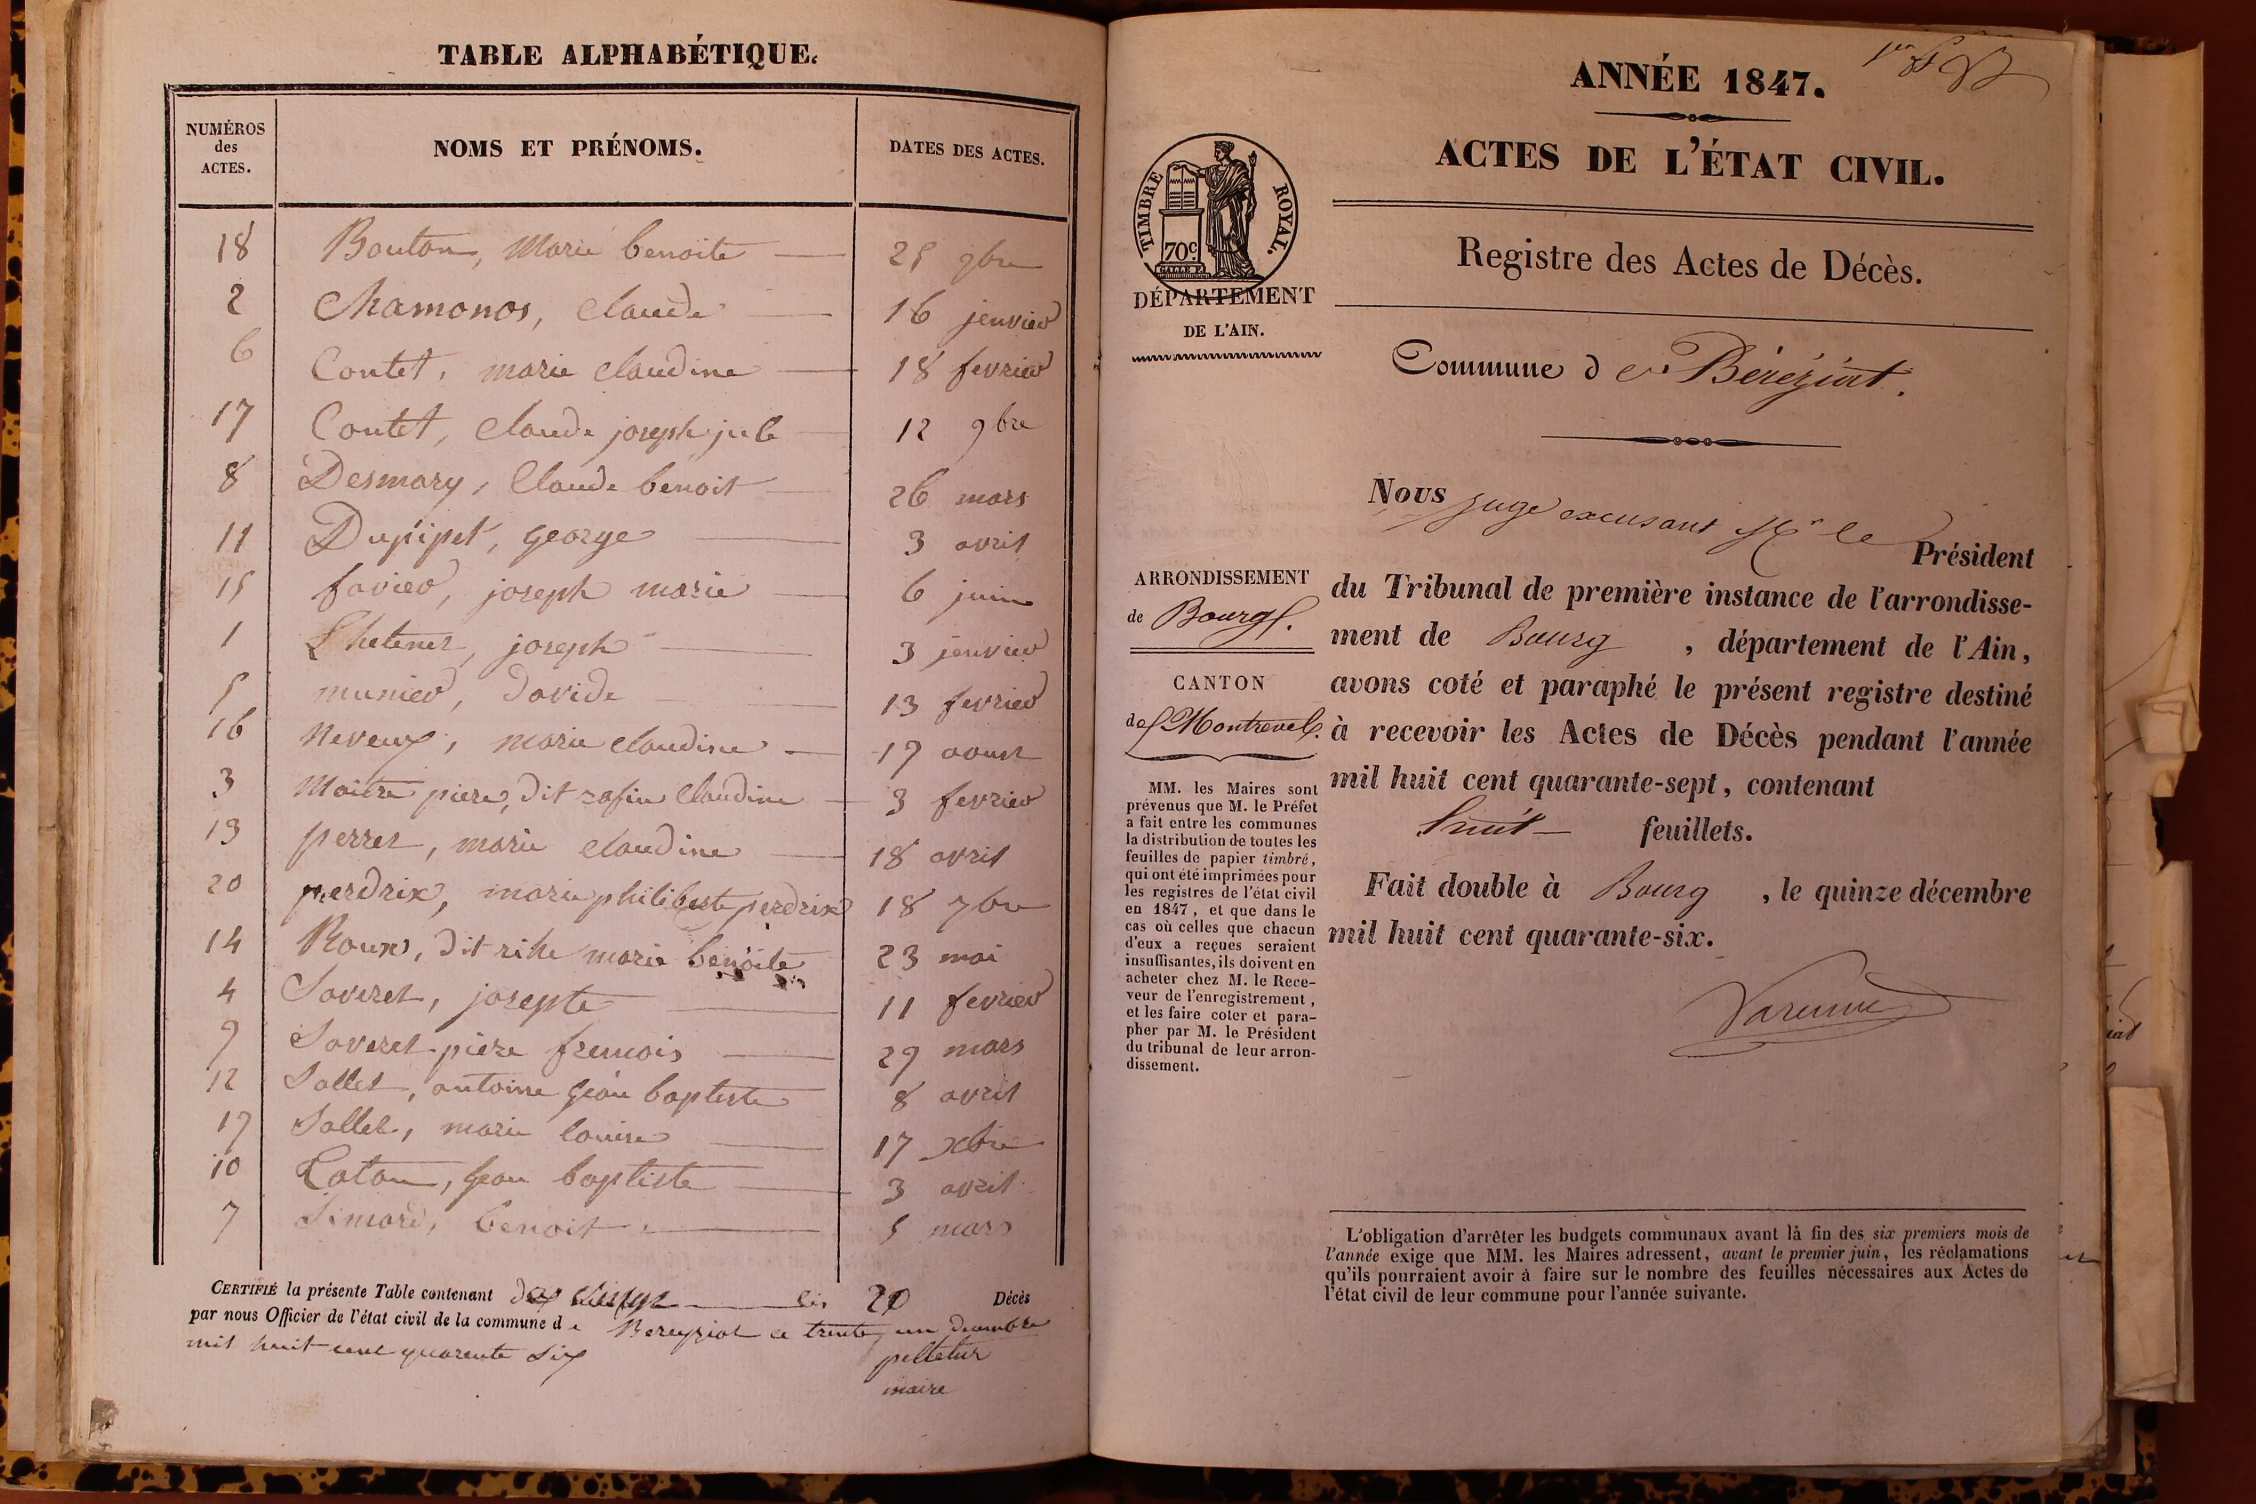 TABLE ALPHABÉTIQUE.
NUMÉROS des ACTES. NOMS ET PRÉNOMS. DATES DES ACTES.
18 Bouton, Marie benoite 25 9bre
2 Chamonos, Claude 16 jenvier
6 Contet, marie Claudine 18 fevrier
17 Contet, Claude joseph jule 12 9bre
8 Desmary, Claude benoit 26 mars
11 Dupipet, george 3 avril
15 favier, joseph marie 6 juin
1 joseph 3 jenvier
5 munier, davide 13 fevrier
16 Neveux, marie claudine 17 aoust
3 Maitre piere, dit Claudine 3 fevrier
13 perret, marie claudine 18 avril
20 perdrix, marie philiberte perdrix 18
14 Roux, dit marie benoite 23 mai
4 Saveret, josepte 11 fevrier
9 Saveret piere frençois 29 mars
12 Sallet, antoine jean baptiste 8 avril
19 Sallet, marie louise 17 xbre
10 Catan, jean baptiste 3 avril
7 Simard, benoit 5 mars
CERTIFIÉ la présente Table contenant les 20 Décès
par nous Officier de l'état civil de la commune de Bereyziat ce trente un decembre
mil huit cent quarente six
pelletier
maire
ANNÉE 1847.
ACTES DE L'ÉTAT CIVIL.
TIMBRE ROYAL.
70c
DÉPARTEMENT
DE L'AIN.
Registre des Actes de Décès.
Commune de Béréziat.
Nous juge excusant Mr le Président
du Tribunal de première instance de l'arrondisse-
ment de Bourg, département de l'Ain,
avons coté et paraphé le présent registre destiné
à recevoir les Actes de Décès pendant l'année
mil huit cent quarante-sept, contenant
huit feuillets.
Fait double à Bourg, le quinze décembre
mil huit cent quarante-six.
Varenne
ARRONDISSEMENT
de Bourg.
CANTON
de Montrevel.
MM. les Maires sont
prévenus que M. le Préfet
a fait entre les communes
la distribution de toutes les
feuilles de papier timbré,
qui ont été imprimées pour
les registres de l'état civil
en 1847, et que dans le
cas où celles que chacun
d'eux a reçues seraient
insuffisantes, ils doivent en
acheter chez M. le Rece-
veur de l'enregistrement,
et les faire coter et para-
pher par M. le Président
du tribunal de leur arron-
dissement.
L'obligation d'arrêter les budgets communaux avant la fin des six premiers mois de
l'année exige que MM. les Maires adressent, avant le premier juin, les réclamations
qu'ils pourraient avoir à faire sur le nombre des feuilles nécessaires aux Actes de
l'état civil de leur commune pour l'année suivante.